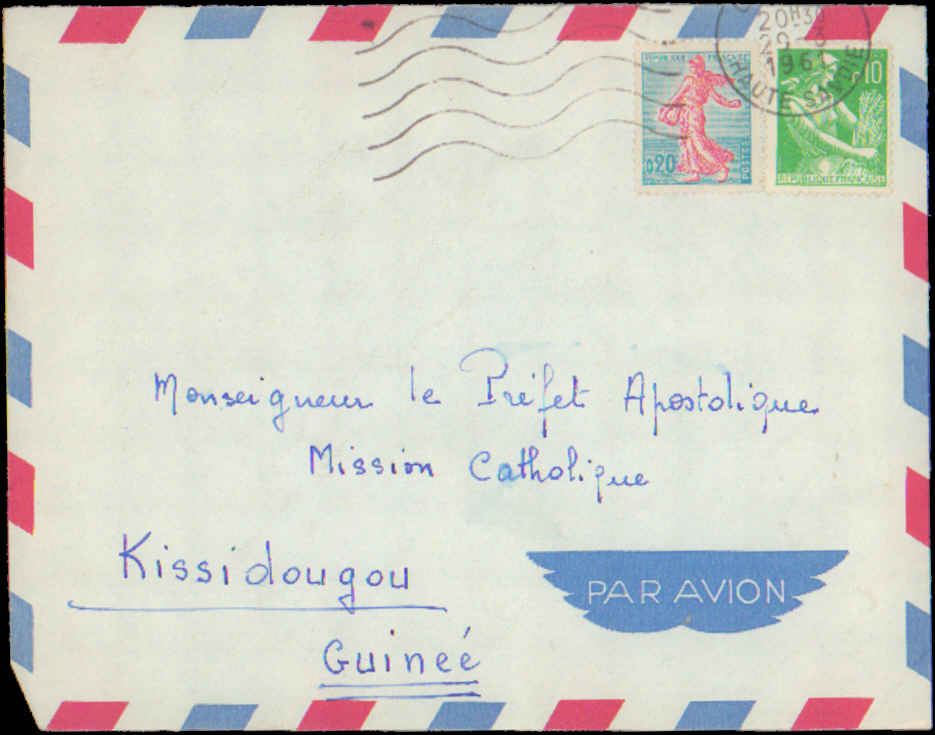 20H30
1961
HAUTE SAVOIE
REPUBLIQUE FRANÇAISE
0,20
POSTES
0,10
REPUBLIQUE FRANÇAISE
Monseigneur le Préfet Apostolique
Mission Catholique
Kissidougou
Guineé
PAR AVION